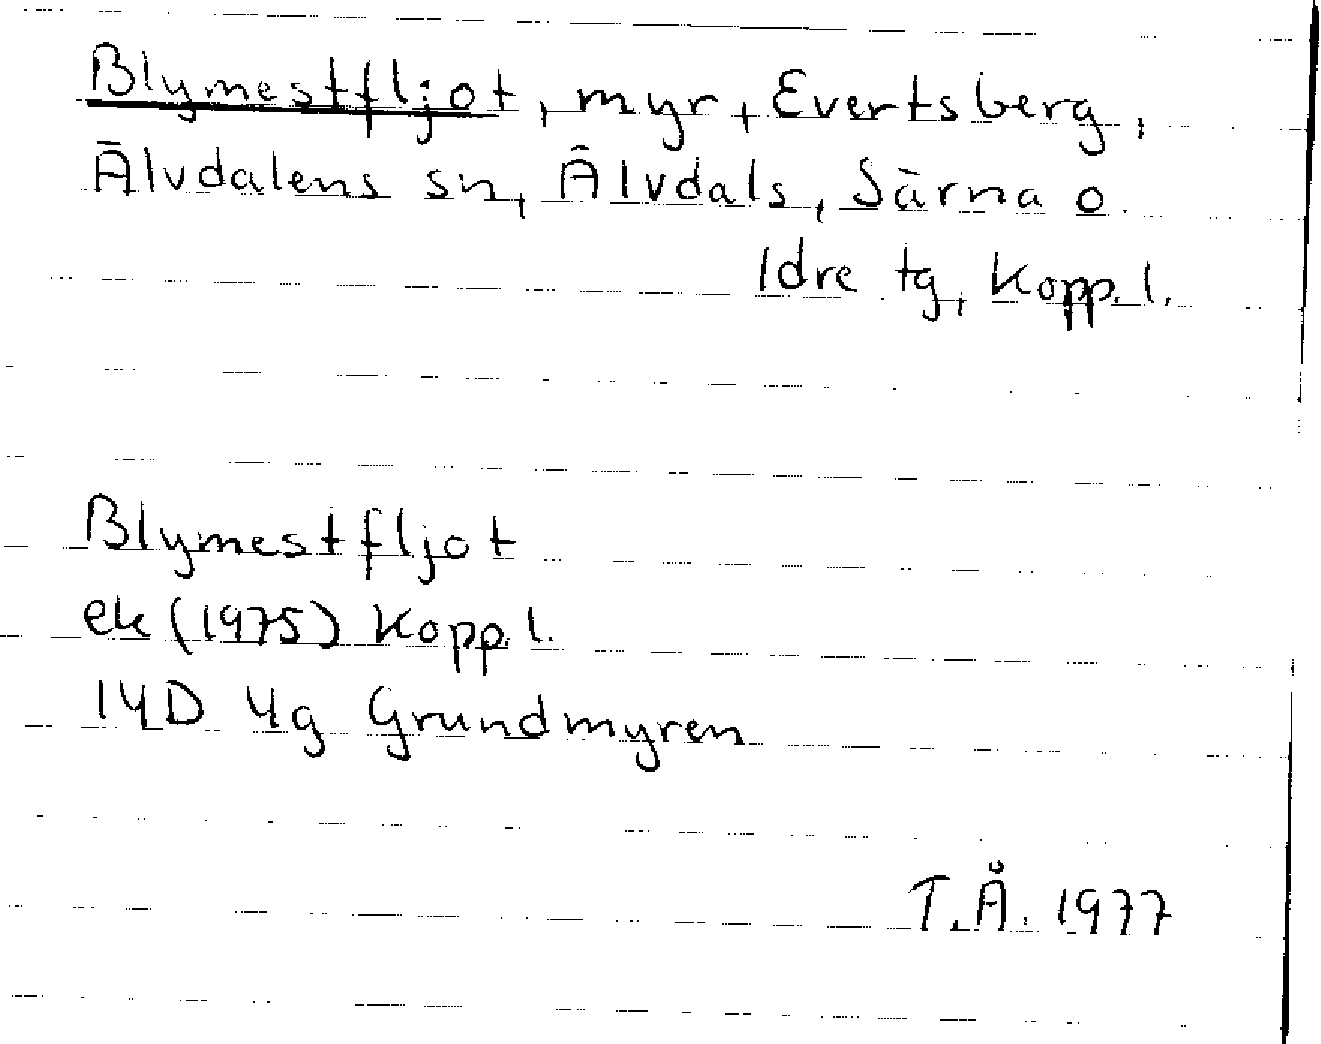 Blymestfljot, myr, Evertsberg,
Älvdalens sn, Älvdals, Särna o.
Idre tg, Kopp. l.
Blymestfljot
ek (1975) Kopp. l.
14D 4g Grundmyren
T.Å. 1977